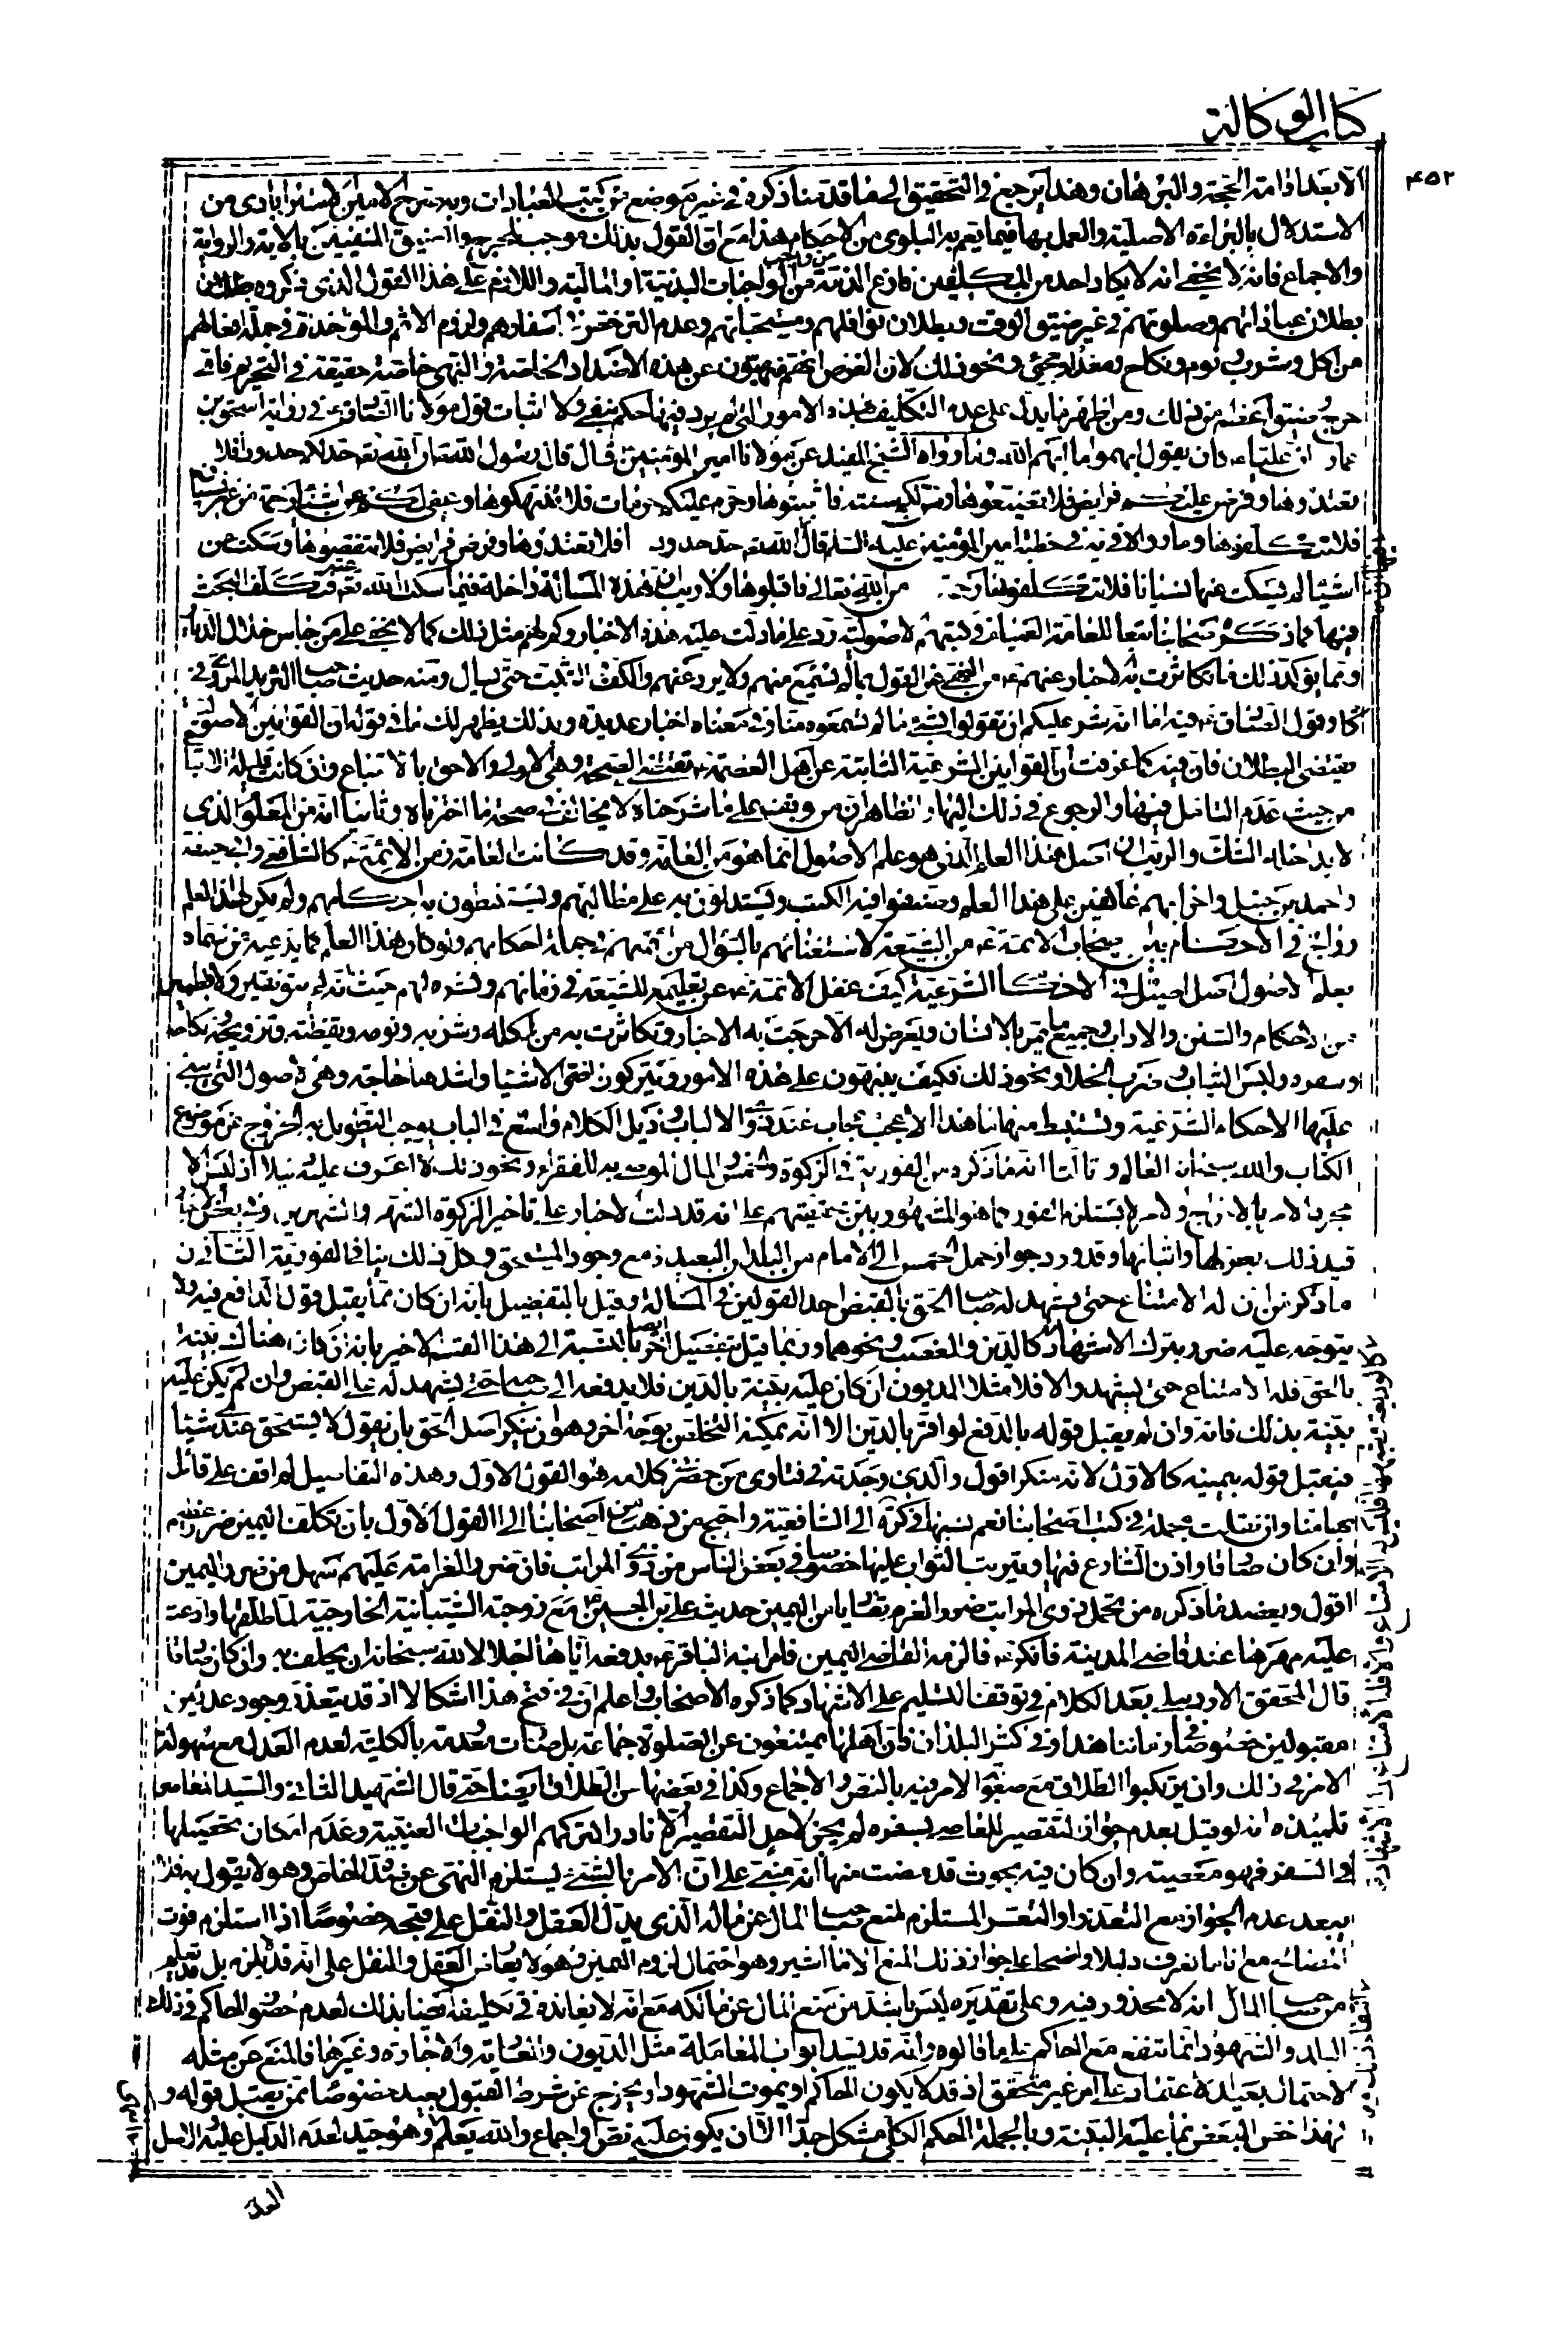 كتاب الوكالة
٤٥٢
الا بعد اقامة الحجة والبرهان وهذا يرجع في التحقيق الى ما قدمنا ذكره في غير موضع من كتب العبادات وبه صرح الامين الاسترابادى من
الاستدلال بالبرائة الاصلية والعمل بها فيما يعم به البلوى من الاحكام هذا مع ان القول بذلك موجب للحرج والضيق المنفيين بالاية والرواية
والاجماع فانه لا يخفى انه لا يكاد احد من المكلفين فارغ الذمة من واجب من الواجبات البدنية او المالية واللازم على هذا القول الذى ذكروه
بطلان عباداتهم وصلوتهم في غير ضيق الوقت وبطلان نوافلهم ومستحباتهم وعدم الترخص في اسفارهم ولزوم الاثم والمؤاخذة في جملة افعالهم
من اكل وشرب ونوم ونكاح ومغدا ومجئ ونحو ذلك لان الفرض انهم منهيون عن هذه الاضداد الخاصة والنهى خاصة حقيقة في التحريم فاى
حرج وضيق اعظم من ذلك ومن اظهر ما يدل على عدم التكليف بهذه الامور التى لم يرد فيها حكم بنفى ولا اثبات قول مولانا الصادق في رواية اسحق بن
عمار ان عليا كان يقول ابهموا ما ابهم الله وما رواه الشيخ المفيد عن مولانا امير المؤمنين قال قال رسول الله ان الله تع حد لكم حدودا فلا
تعتدوها وفرض عليكم فرايض فلا تضيعوها وسن لكم سننا فاتبعوها وحرم عليكم حرمات فلا تنتهكوها وعفى لكم عن اشياء رحمة من غير نسيان
فلا تتكلفوها وما رواه في في خطبة امير المؤمنين عليه السلم قال ان الله تع حد حدودا فلا تعتدوها وفرض فرايض فلا تنقصوها وسكت عن
اشياء لم يسكت عنها نسيانا فلا تتكلفوها رحمة من الله تعالى فاقبلوها ولا ريب ان هذه المسألة داخلة فيما سكت الله تع عنه فتكلف البحث
فيها كما ذكره اصحابنا تبعا للعامة العمياء في كتبهم الاصولية رد على ما دلت عليه هذه الاخبار وكم لهم مثل ذلك كما لا يخفى على من جاس خلال الديار
ومما يؤكد ذلك ما تكاثرت به الاخبار عنهم من النهى عن القول بما لم يسمع منهم ولا يرد عنهم والكف والتثبت حتى يسأل ومنه حديث صاحب البريد المروى في
الكافي وقول الصادق فيه اما انه شر عليكم ان تقولوا بشئ ما لم تسمعوه منا وفي معناه اخبار عديدة وبذلك يظهر لك ما في قوله ان القوانين الاصولية
تقتضى البطلان فان فيه كما عرفت ان القوانين الشرعية الثابتة عن اهل العصمة تقتضى الصحة وهى الاولى والاحق بالاتباع وان كانت قليلة الاتباع
من حيث عدم التامل فيها والرجوع في ذلك اليها والظاهر ان من وقف على ما شرحناه لا يخالف في صحة ما اخترناه وثانيا انه من المعلوم الذى
لا يداخله الشك والريب ان اصل هذا العلم الذى هو علم الاصول انما هو من العامة وقد كانت العامة زمن الائمة كالشافعى وابى حنيفة
واحمد بن حنبل واضرابهم عاكفين على هذا العلم وصنفوا فيه الكتب ويستدلون به على مطالبهم ويستنبطون به احكامهم ولم يكن لهذا العلم
رواج في الاحكام بين اصحاب الائمة من الشيعة لاستغنائهم بالسؤال من ائمتهم في جملة احكامهم ولو كان هذا العلم كما يدعيه من سماه
بعلم الاصول اصل اصيل في الاحكام الشرعية كيف غفل الائمة عن تعليمه للشيعة في زمانهم ونشره لهم حيث انه لم يبق نقير ولا قطمير
من الاحكام والسنن والاداب وجميع ما يمر بالانسان ويعرض له الا خرجت به الاخبار وتكاثرت به من اكله وشربه ونومه ويقظته وتزويجه ونكاحه
وسفره ولبس الثياب وضرب الخلا ونحو ذلك فكيف ينبهون على هذه الامور ويتركون اهم الاشياء واشدها حاجة وهى الاصول التى يبنى
عليها الاحكام الشرعية وتستنبط منها ما هذا الا عجب عجاب عند ذوى الالباب وذيل الكلام واسع في الباب يوجب التطويل به الخروج عن موضوع
الكتاب والله سبحانه العالم وثالثا انه ما ذكره من الفورية في الزكوة والخمس والمال الموصى به للفقراء ونحو ذلك لا اعرف عليه دليلا اذ ليس الا
مجرد الامر بالاخراج والامر لا يستلزم الفور كما هو المشهور بين محققيهم على انه قد دلت الاخبار على تاخير الزكوة الشهر والشهرين وفى بعض الاخبار
قيد ذلك بعزلها واثباتها وقد ورد جواز حمل الخمس الى الامام من البلدان البعيدة مع وجود المستحق وكل ذلك ينافي الفورية الثانى
ما ذكر من ان له الامتناع حتى يشهد له صاحب الحق بالقبض احد القولين في المسألة وقيل بالتفصيل بانه ان كان مما يقبل قول الدافع فيه ولا
يتوجه عليه ضرر بترك الاشهاد كالدين والغصب ونحوهما وربما قيل بتفصيل اخر ايضا بالنسبة الى هذا القسم الاخير بانه ان كان هناك بينة
بالحق فله الامتناع حتى يشهد والا فلا مثلا المديون ان كان عليه بينة بالدين فلا يدفعه الى صاحبه حتى يشهد له على القبض وان لم يكن عليه
بينة بذلك فانه وان لم يقبل قوله بالدفع لو اقر بالدين الا انه يمكنه التخلص بوجه اخر وهو ان ينكر اصل الحق بان يقول لا يستحق عندى شيئا
فيقبل قوله بيمينه كالاول لانه منكر اقول والذى وجدته في فتاوى من حضرنى كلامه هو القول الاول وهذه التفاصيل لم اقف على قائل
بها منا وان نقلت مجملة في كتب اصحابنا نعم نسبها في كرة الى الشافعية واحتج من ذهب من اصحابنا الى القول الاول بان تكلف اليمين ضرر عظيم
وان كان صادقا واذن الشارع فيها ويترتب الثواب عليها خصوصا في بعض الناس من ذوى المراتب فان ضرر الغرامة عليهم اسهل من ضرر اليمين
اقول ويعضد ما ذكره من تحمل ذوى المراتب ضرر الغرم تفصيا من اليمين حديث على بن الحسين مع زوجته الشيبانية الخارجية لما طلقها وادعت
عليه مهرها عند قاضى المدينة فانكره فالزمه القاضى اليمين فامر ابنه الباقر بدفعه اياها اجلالا لله سبحانه ان يحلف به وان كان صادقا
قال المحقق الاردبيلى بعد الكلام في توقف التسليم على الاشهاد كما ذكره الاصحاب واعلم ان في فتح هذا اشكالا اذ قد يتعذر وجود عدلين
مقبولين خصوصا في زماننا هذا وفى كثر البلدان فان اهلها يمتنعون عن الصلوة جماعة بل صارت معدمة بالكلية لعدم العدل مع سهولة
الامر في ذلك وان يرتكبوا الطلاق مع صعوبة الامر فيه بالنص والاجماع وكذا في بعضها من الطلاق ايضا حتى قال الشهيد الثانى والسيد
تلميذه انه لو قيل بعدم جواز التقصير للعاصى بسفره لم يجز لاحد التقصير الا نادرا لتركهم الواجبات العينية وعدم امكان تحصيلها
في السفر فهو معصية وان كان فيه بحوث قد مضت منها انه مبنى على ان الامر بالشئ يستلزم النهى عن ضده الخاص وهو لا يقول به
يبعد عدم الجواز مع التعذر او التعسر المستلزم لمنع صاحب المال عن ماله الذى يدل العقل والنقل على قبحه خصوصا اذا استلزم فوت
مع انا ما نعرف دليلا واضحا على جواز ذلك المنع الا ما اشير وهو احتمال لزوم اليمين وهو لا يعارض العقل والنقل على انه قد لا يلزم بل
من صاحب المال انه لا محذور فيه وعلى تقديره ليس باشد من منع المال عن مالكه مع انه لا فائدة في تكليفه ايضا بذلك لعدم حضور الحاكم في ذلك
البلد والشهود انما تنفع مع الحاكم على ما قالوه وانه قد يسد ابواب المعاملة مثل الديون والعارية والاجارة وغيرها فالمنع عن مثله
لاحتمال بعيد لاعتماد على امر غير متحقق اذ قد لا يكون الحاكم او يموت الشهود او يخرج عن شرط القبول بعيد خصوصا ممن يقبل قوله و
لهذا خص البعض بما عليه البينة وبالجملة الحكم الكلى مشكل جدا الا ان يكون عليه نص او اجماع والله يعلم وهو جيد لعدم الدليل عليه الاصل